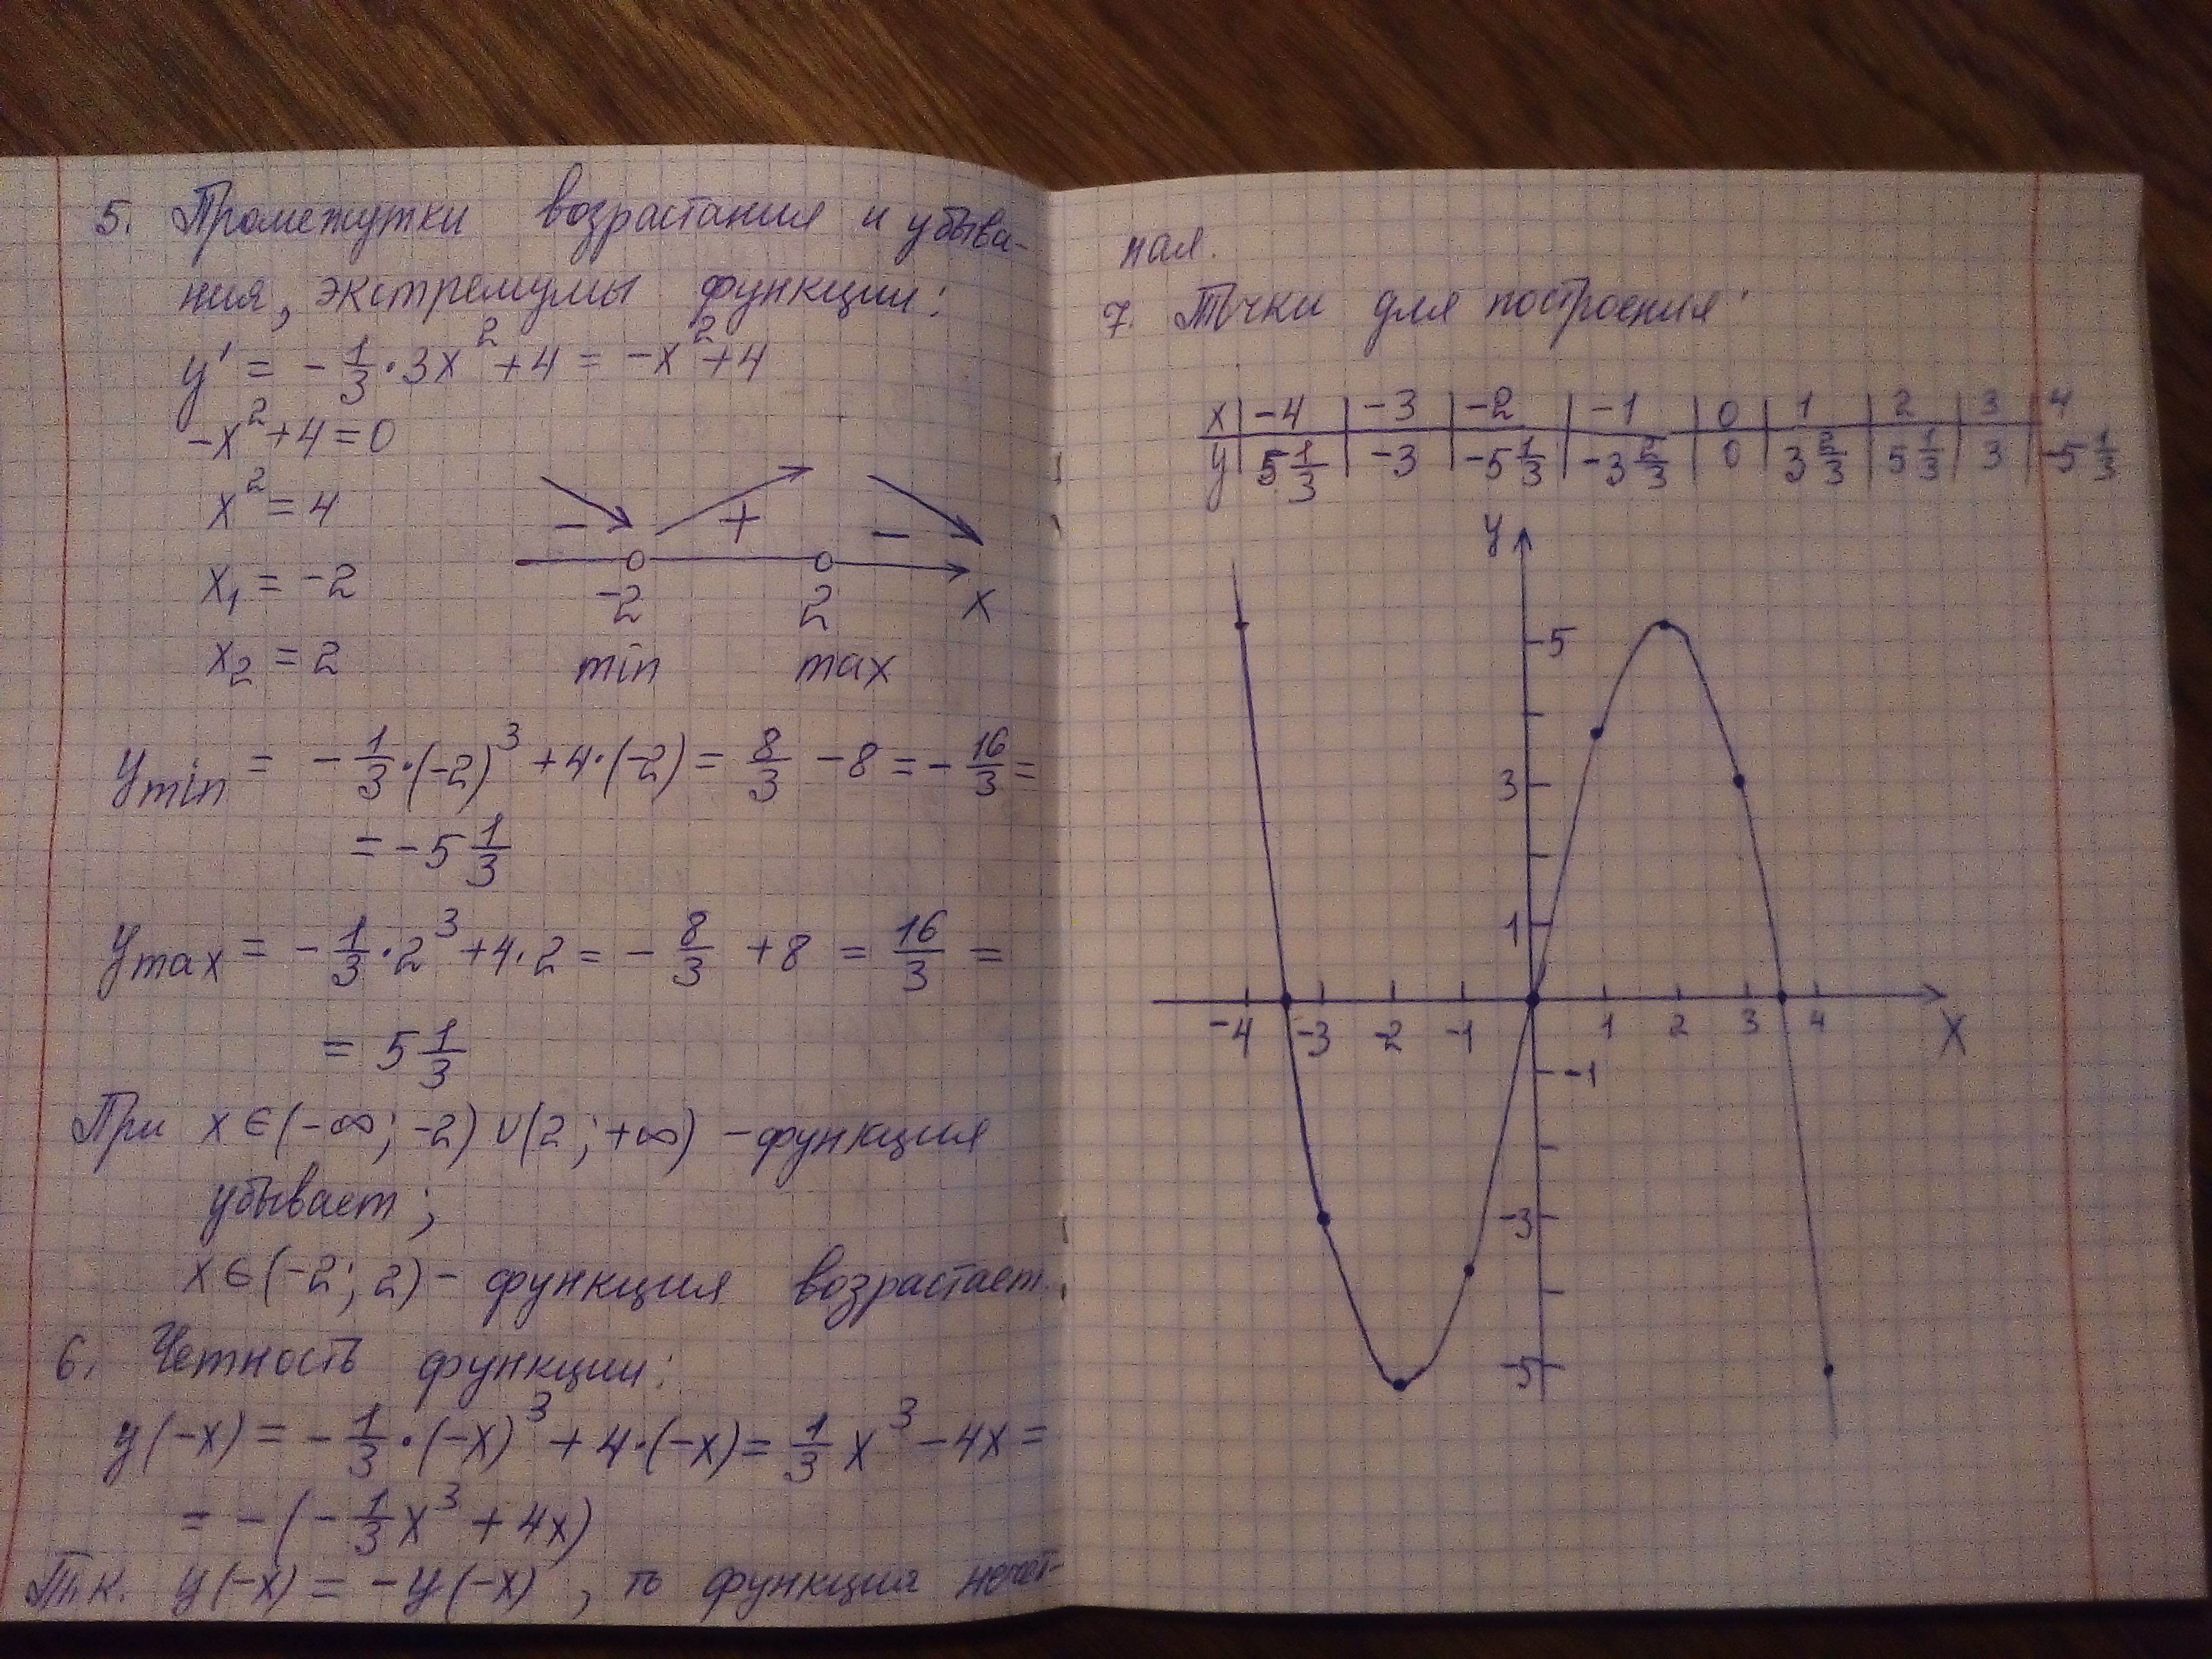 5. Промежутки возрастания и убыва-
ния, экстремумы функции:
y' = -1/3·3x²+4 = -x²+4
-x²+4=0
x²=4
x₁ = -2
x₂ = 2
- + -
-2 2 x
min max
ymin = -1/3·(-2)³+4·(-2) = 8/3 -8 = -16/3 =
= -5 1/3
ymax = -1/3·2³+4·2 = -8/3 +8 = 16/3 =
= 5 1/3
При x∈(-∞; -2)∪(2; +∞) - функция
убывает;
x∈(-2; 2) - функция возрастает.
6. Четность функции:
y(-x) = -1/3·(-x)³+4·(-x) = 1/3 x³-4x =
= -(-1/3 x³+4x)
Т.к. y(-x) = -y(-x), то функция нечет-
ная.
7. Точки для построения:
x | -4 | -3 | -2 | -1 | 0 | 1 | 2 | 3 | 4
y | 5 1/3 | -3 | -5 1/3 | -3 2/3 | 0 | 3 2/3 | 5 1/3 | 3 | -5 1/3
y
5
3
1
-4 -3 -2 -1 1 2 3 4 x
-1
-3
-5